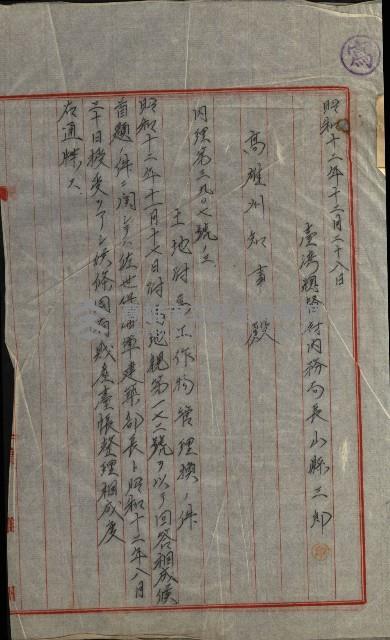 寫
昭和十二年十二月二十八日
臺灣總督府內務局長山縣三郎
高雄州知事殿
內理第三九〇七號ノ三
土地附屬工作物管理換ノ件
昭和十二年十二月十七日附高地親第一七二號ヲ以テ回答相成候
首題ノ件ニ関シテハ佐世保海軍建築部長ト昭和十二年八月
二十日授受ヲアシ候條國有財產臺帳整理相成度
右通牒ス